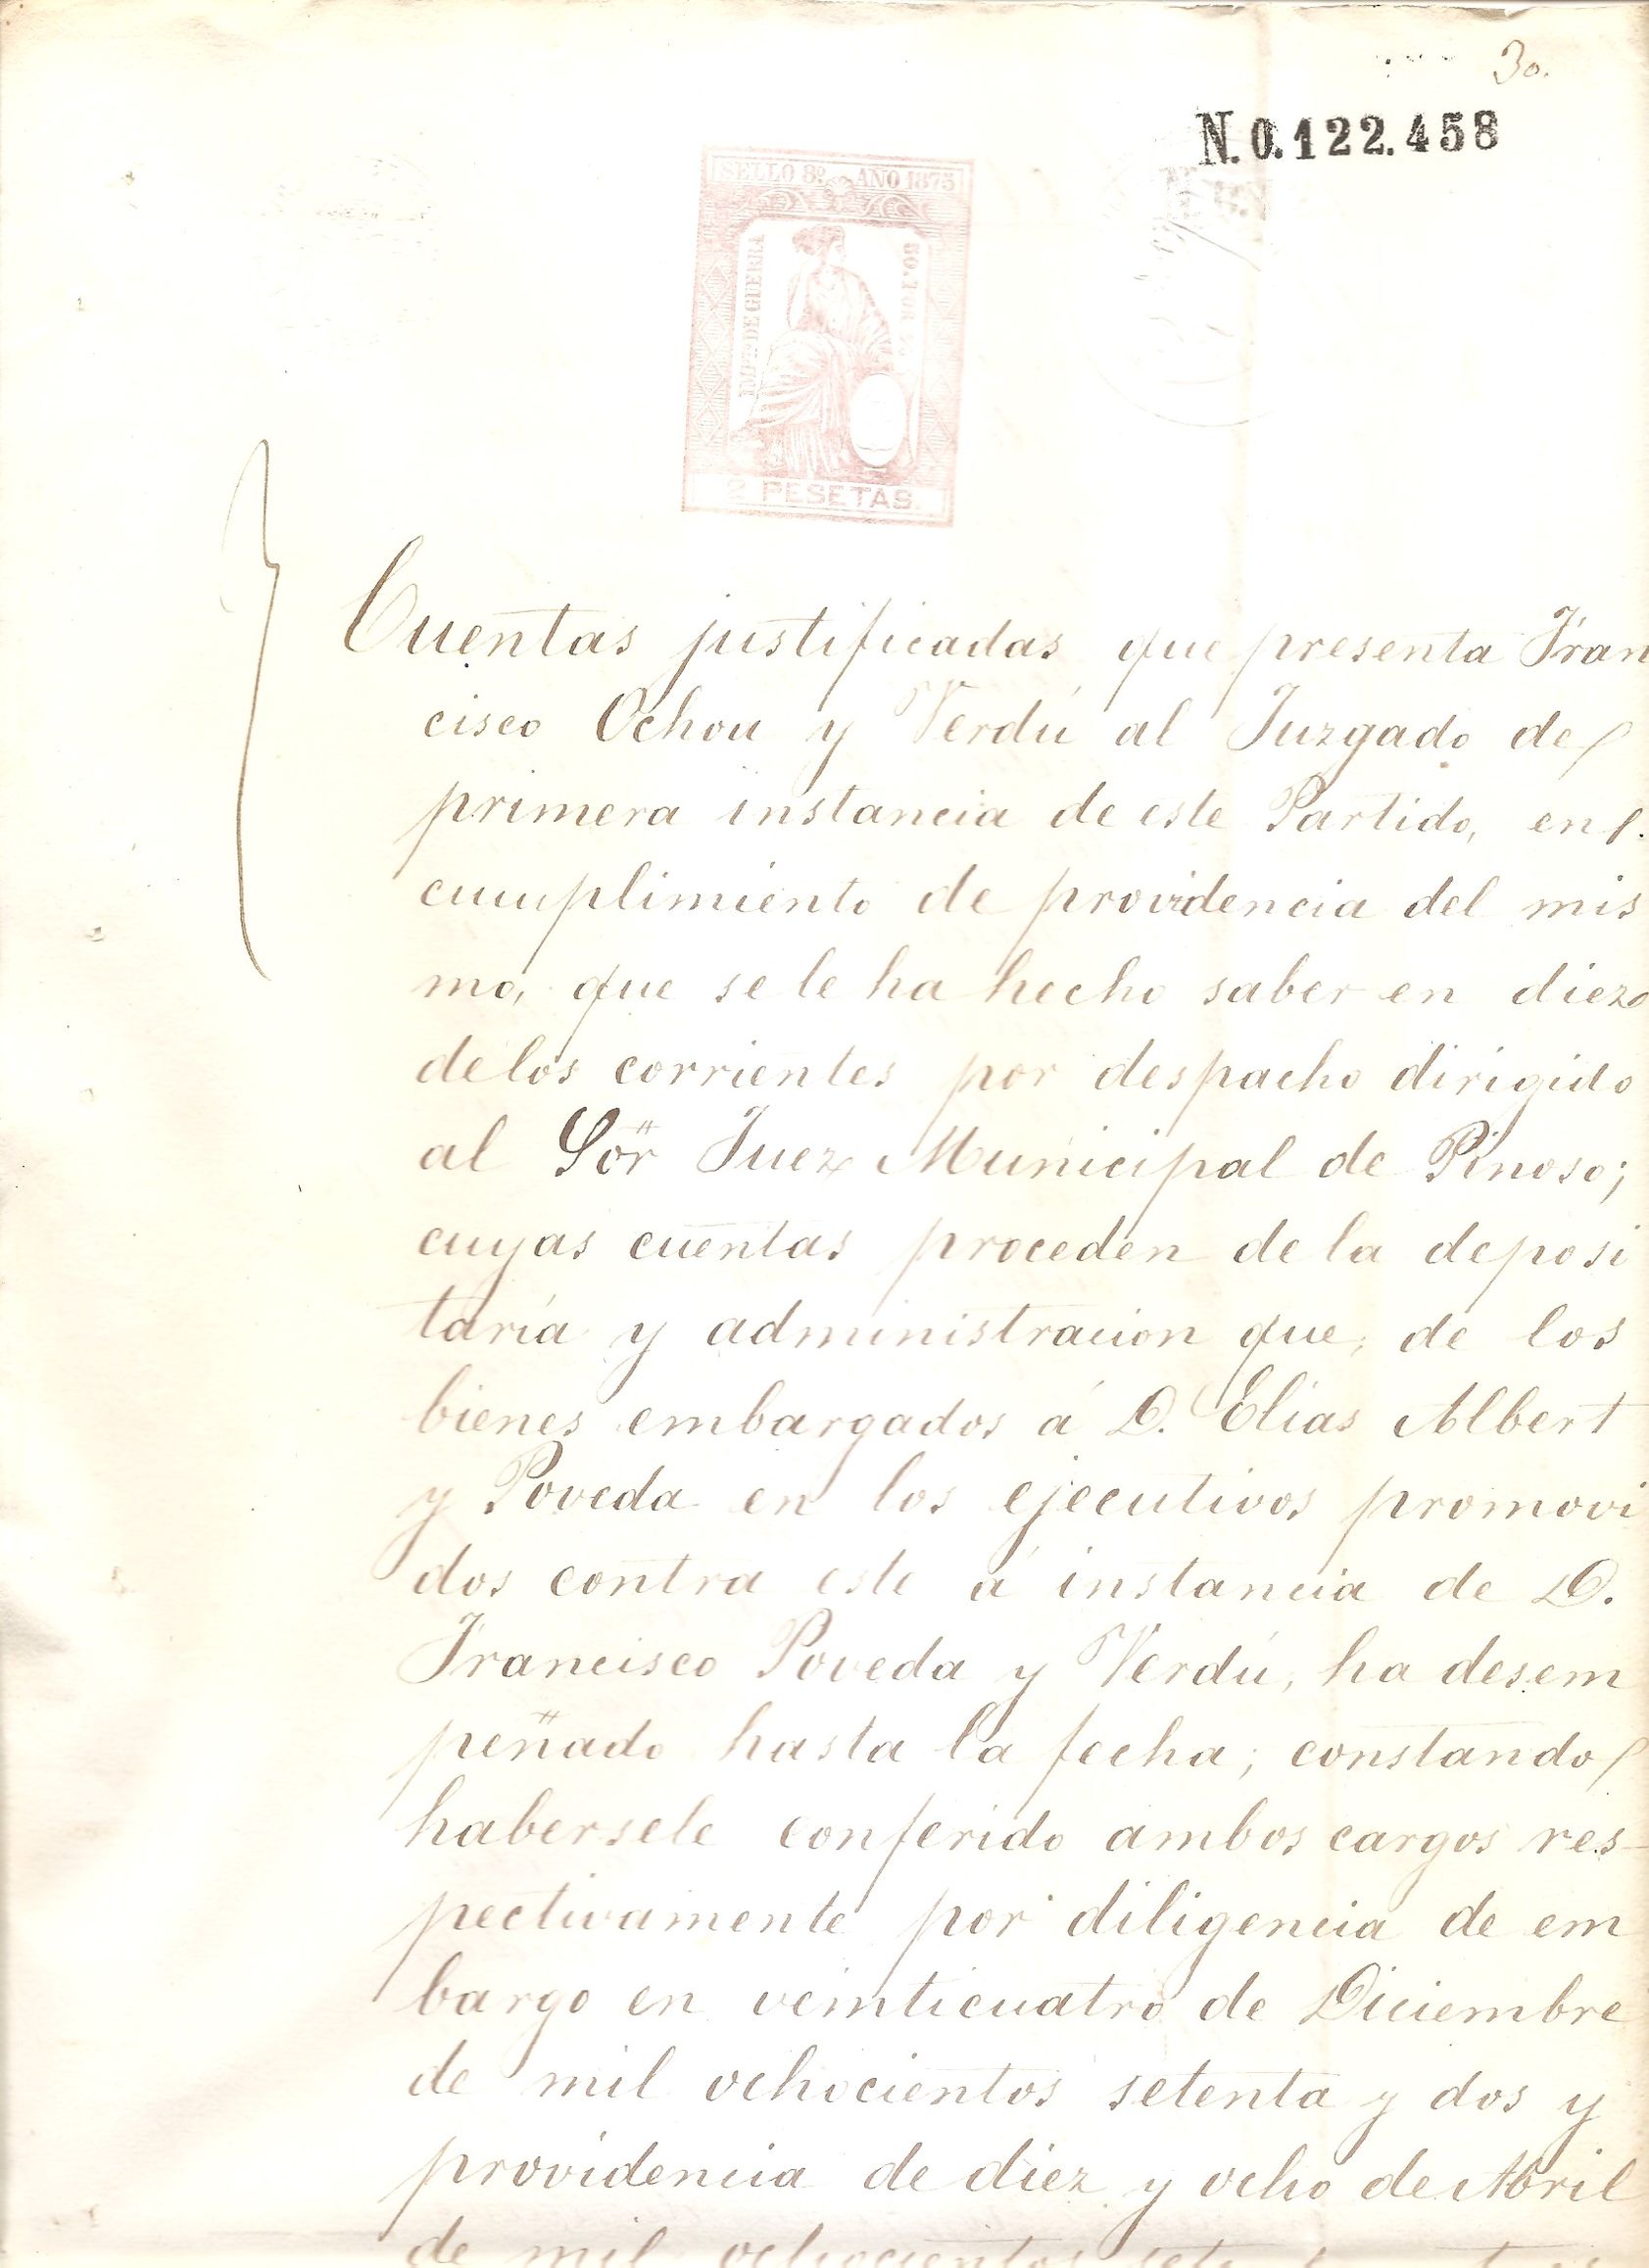 30.
N.0.122.458
SELLO 8º AÑO 1875
IMPto DE GUERRA
2 PESETAS.
Cuentas justificadas que presenta Fran
cisco Ochoa y Verdú al Juzgado de
primera instancia de este Partido, en
cumplimiento de providencia del mis
mo, que se le ha hecho saber en diez
de los corrientes por despacho dirigido
al Sör Juez Municipal de Pinoso;
cuyas cuentas proceden de la deposi
taría y administracion que, de los
bienes embargados á D. Elias Albert
y Poveda en los ejecutivos promovi
dos contra este á instancia de D.
Francisco Poveda y Verdú, ha desem
peñado hasta la fecha; constando
habersele conferido ambos cargos res-
pectivamente por diligencia de em
bargo en veinticuatro de Diciembre
de mil ochocientos setenta y dos y
providencia de diez y ocho de Abril
de mil ochocientos